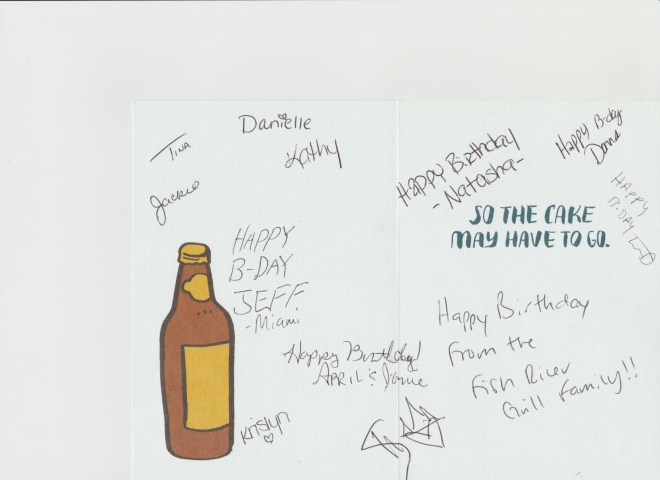 Danielle
Tina
Kathy
Jackie
HAPPY
B-DAY
JEFF
-Miami
Happy Birthday!
April &
Krislyn
Happy Birthday
-Natasha-
Happy B-day
Donna
HAPPY
B-DAY
SO THE CAKE
MAY HAVE TO GO.
Happy Birthday
From the
Fish River
Grill Family!!